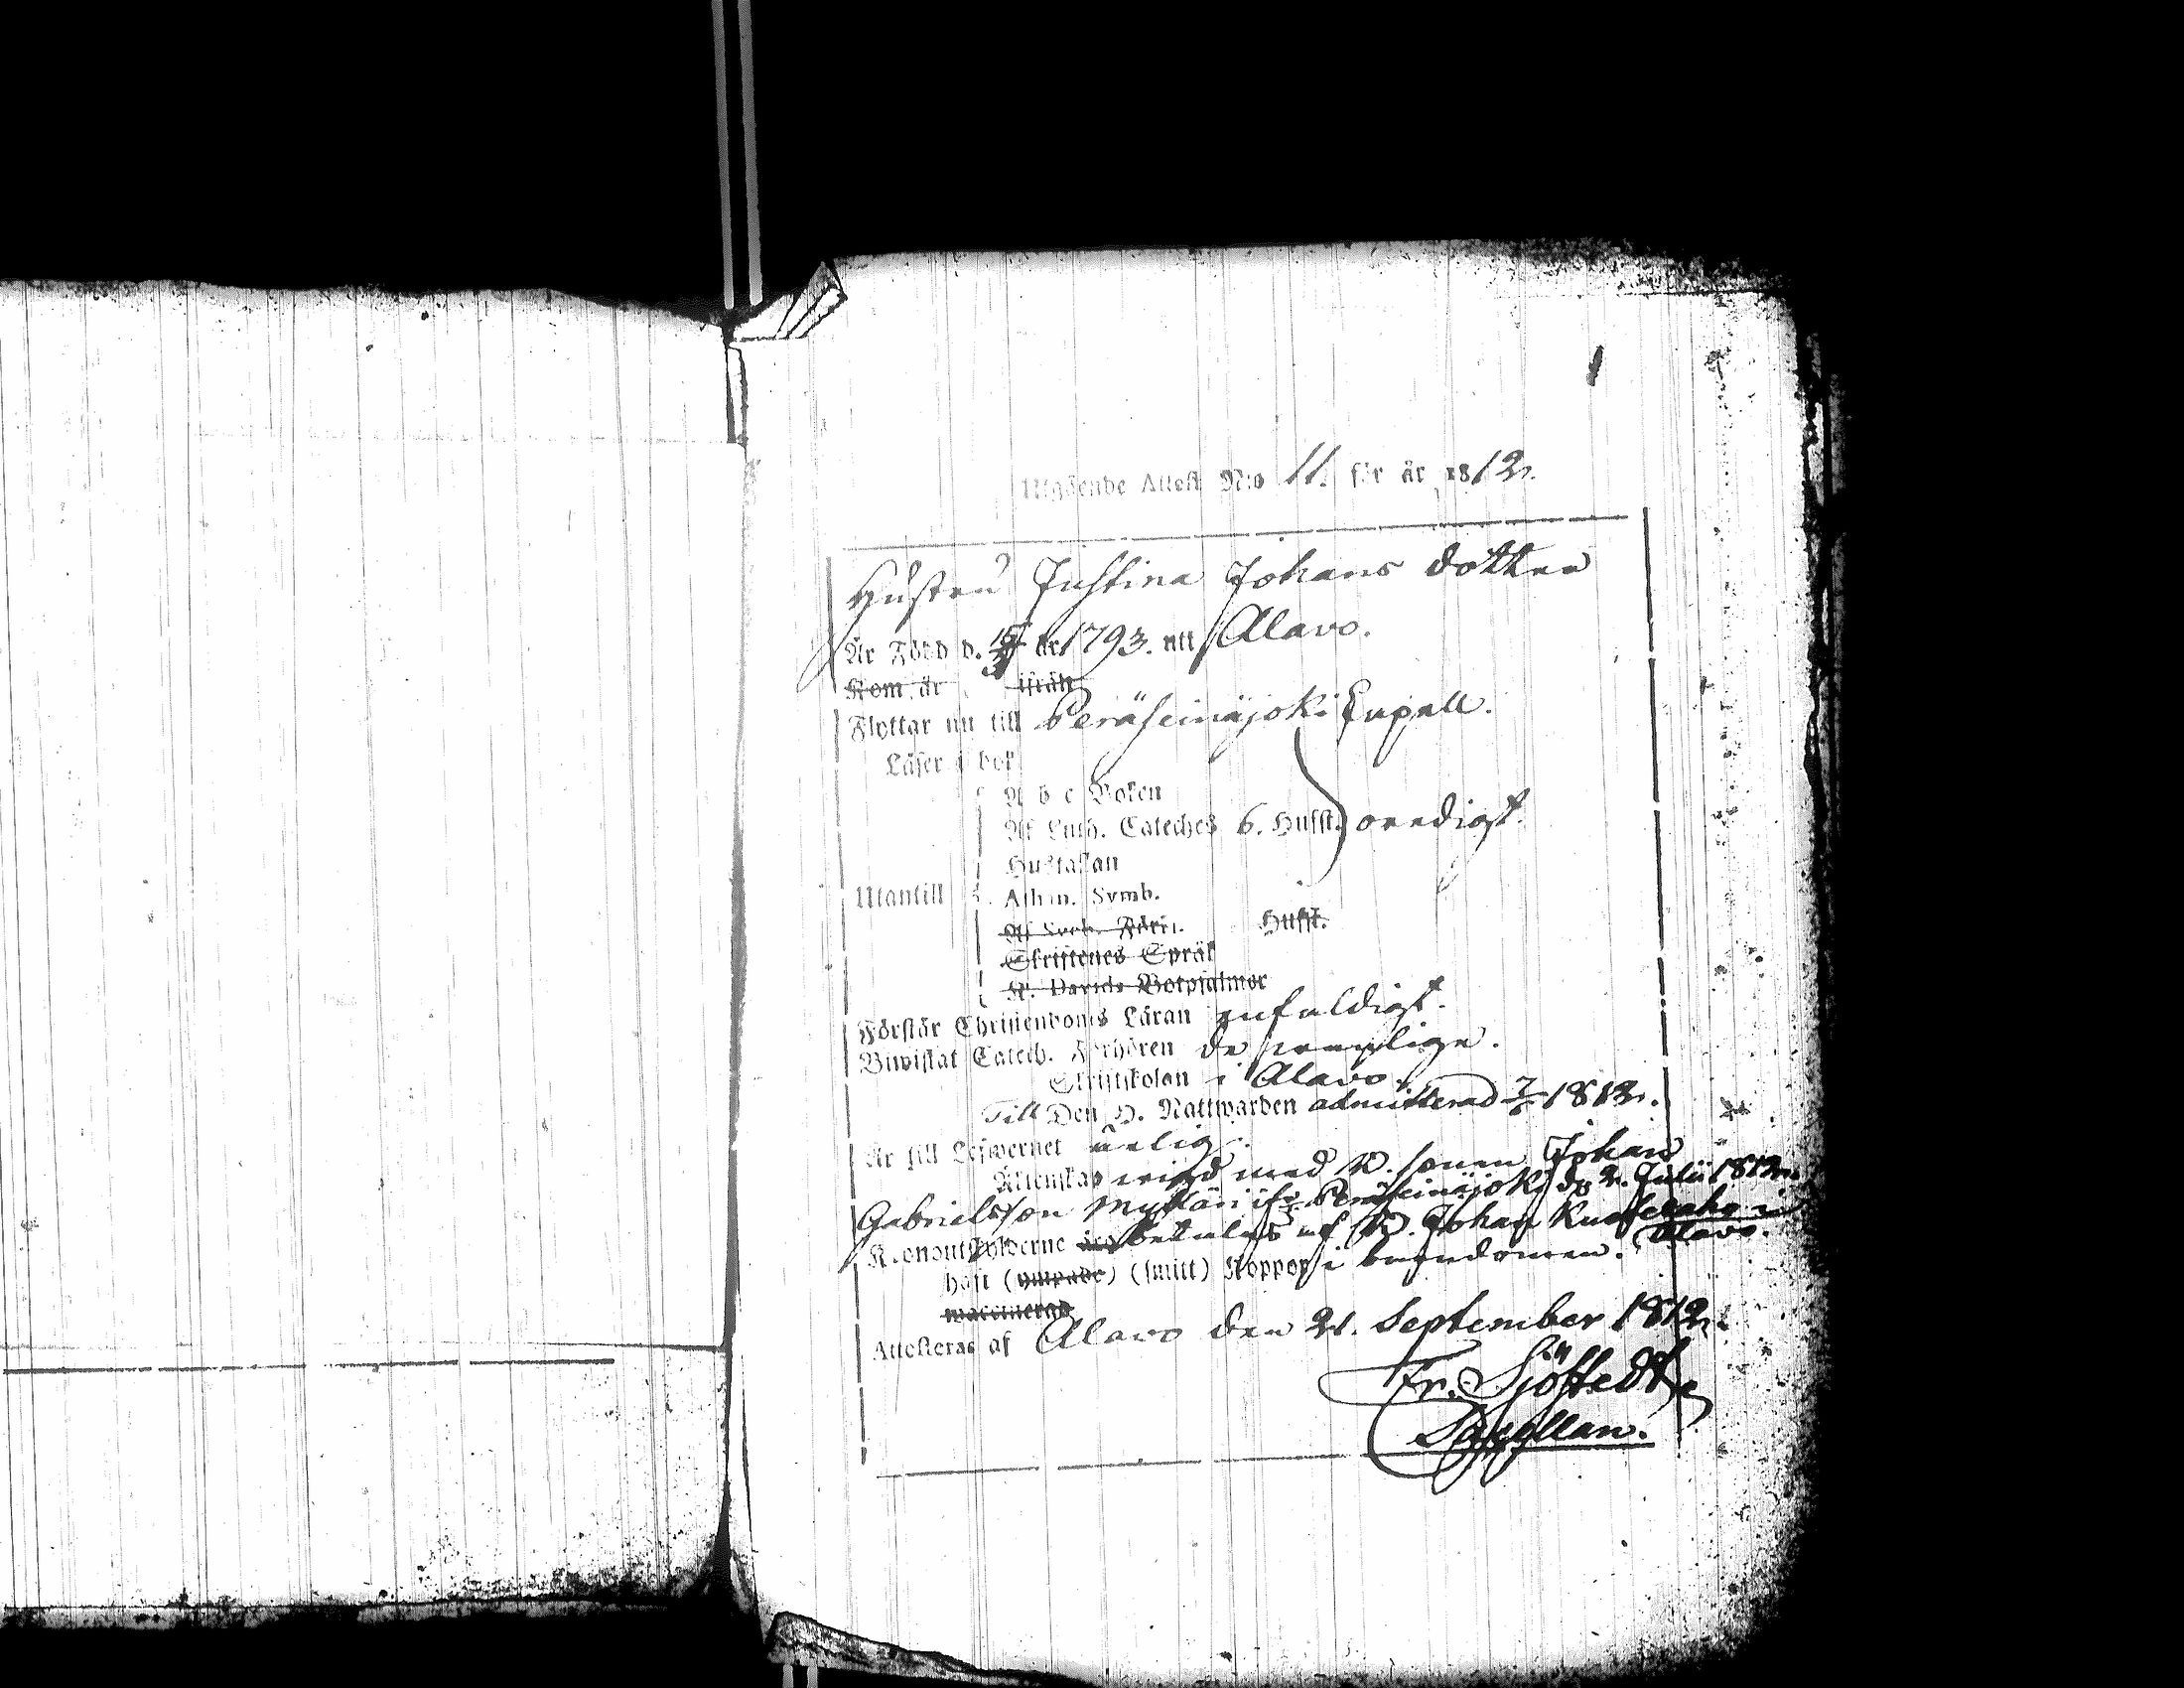 1
Utgående Attest N:o 11. för år 1812.
Hustru Justina Johans dotter
Är Född d. 15/3 år 1793. att Alavo.
Kom år ifrån
Flyttar nu till Peräseinäjoki Capell.
Läser i bok
A b c Boken
Af Luth. Cateches 6. Hufst. oredigt.
Hustaflan
Utantill Athan. Symb.
Af Sveb. Förkl. Hufst.
Skriftenes Språk
K. Davids Botpsalmer
Förstår Christendoms Läran enfaldigt.
Biwistat Catech. Förhören de
Skriftskolan i Alavo.
Till Den H. Nattwarden admitterad 1812.
Är till Lefwernet ärlig.
Äktenskap wigd med B. sonen Johan
Gabrielsson Mylläri ifr. Peräseinäjoki d. 2. Julii 1812.
Kronoutskylderne äro betalas af B. Johan i
haft (ympade) (smitt) Koppor i barndomen. Alavo.
waccinerad
Attesteras af Alavo den 21. September 1812.
Fr. Sjöstedt
Sacellan.